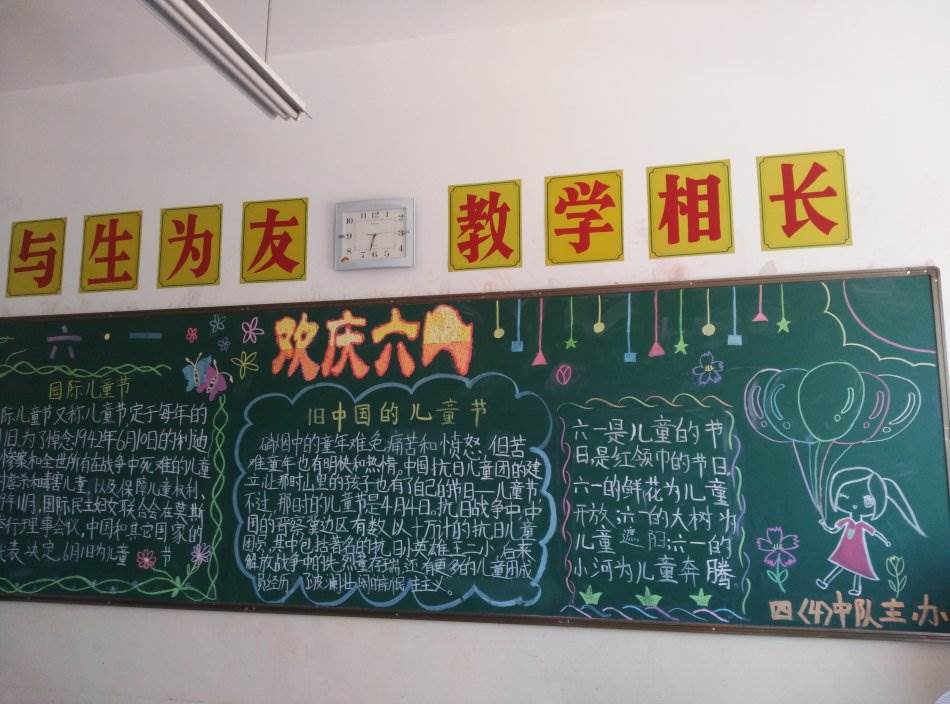 与生为友
教学相长
六·一
欢庆六一
国际儿童节
际儿童节又称儿童节,定于每年的
日。为了悼念1942年6月10日的利迪
惨案和全世界所有在战争中死难的儿童
虐杀和毒害儿童,以及保障儿童权利、
9年11月,国际民主妇女联合会在莫斯
举行理事会议,中国和其它国家的
代表决定,6月1日为儿童 节
旧中国的儿童节
硝烟中的童年难免痛苦和愤怒,但苦
难童年也有明快和热情。中国抗日儿童团的建
立,让那时儿里的孩子也有了自己的节日——儿童节
不过,那时的儿童节是4月4日,抗日战争中,中
国的晋察冀边区有数以十万计的抗日儿童
团员,其中包括著名的抗日小英雄王二小,后来
解放战争中的 还有更多的儿童用成
六一是儿童的节
日,是红领巾的节日
六一的鲜花为儿童
开放,六一的大树为
儿童遮阳六一的
小河为儿童奔腾
四(4)中队主办